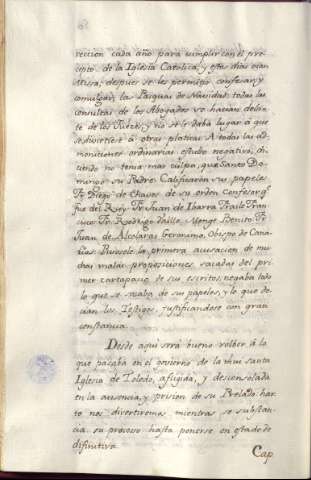 reccion cada año para cumplir con el pre-
cepto de la Iglesia Catolica, y estos dias oian
Missa; despues se les permitio confesar, y
comulgar las Pasquas de Navidad: todas las
consultas de los Abogados se hacian delan-
te de los Jueces, y no se le daba lugar á que
se divirtiese á otras platicas. A todas las ad-
moniciones ordinarias estubo negativo, di-
ciendo no tenia mas culpa, que Santo Do-
mingo su Padre. Calificaron sus papeles
Fr. Diego de Chaves de su orden confesor q.
fue del Rey Fr. Juan de Ibarra Fraile Fran-
cisco Fr. Rodrigo Monge Benito, Fr.
Juan de Alcolaras Geronimo, Obispo de Cana-
rias. Pusosele la primera acusacion de mu-
chas malas proposiciones sacadas del pri-
mer cartapacio de sus escritos, negaba todo
lo que se sacaba de sus papeles, y lo que de-
cian los Testigos, justificandose con gran
constancia.
Desde aqui será bueno volber á lo
que pasaba en el govierno de la santa
Iglesia de Toledo, afligida, y desconsolada
en la ausencia, y prision de su Prelado har-
to nos divertiremos mientras se substan-
cia su proceso hasta ponerse en estado de
difinitiva.
Cap